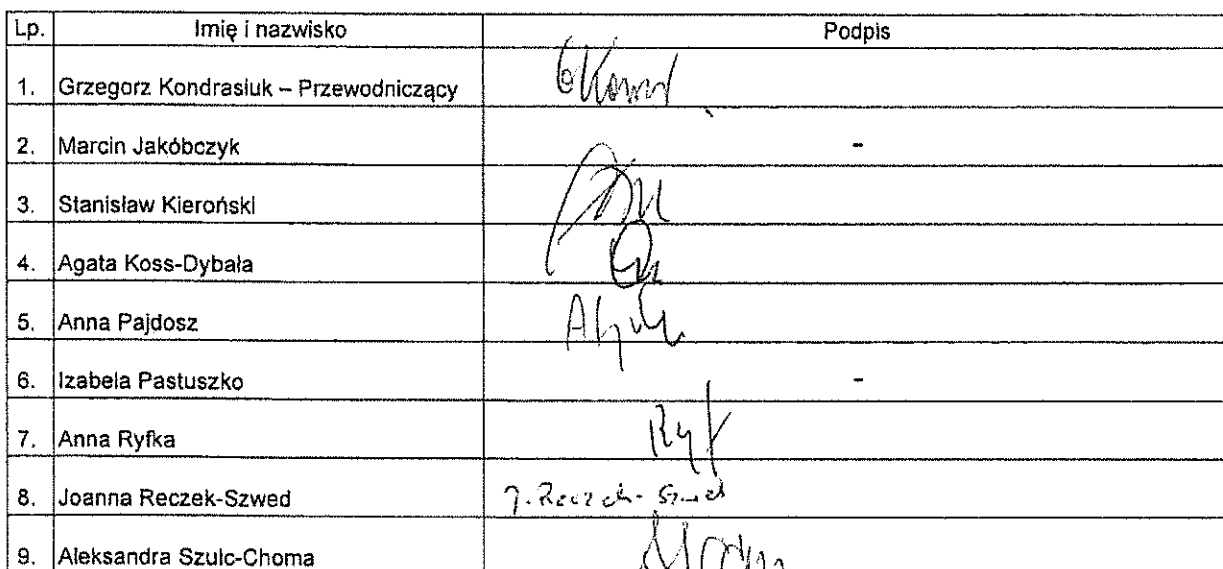 Lp. Imię i nazwisko Podpis
1. Grzegorz Kondrasiuk – Przewodniczący
2. Marcin Jakóbczyk -
3. Stanisław Kieroński
4. Agata Koss-Dybała
5. Anna Pajdosz
6. Izabela Pastuszko -
7. Anna Ryfka Ryf
8. Joanna Reczek-Szwed J. Reczek-Szwed
9. Aleksandra Szulc-Choma